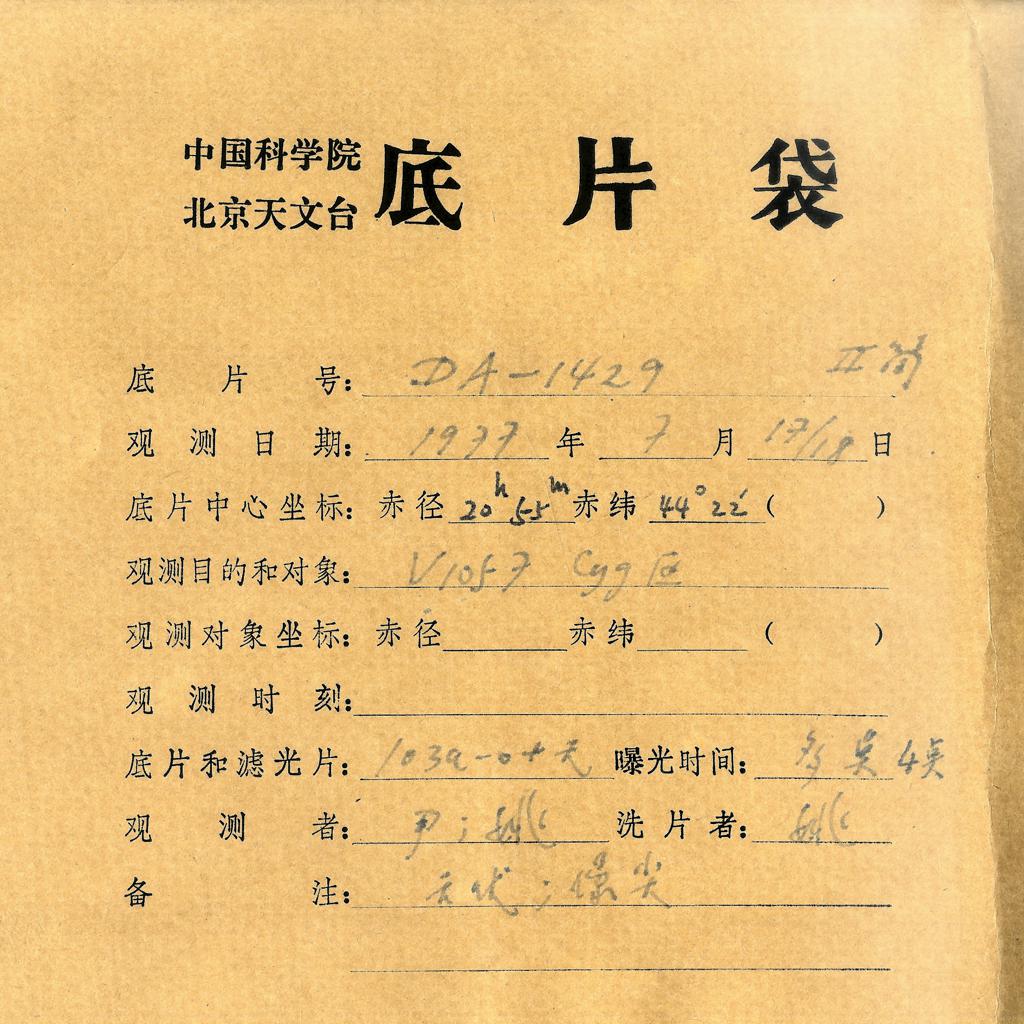 中国科学院
北京天文台 底片袋
底片号: DA-1429 II
观测日期: 1977 年 7 月 17/18 日
底片中心坐标: 赤径 20h 55m 赤纬 44° 22′ ( )
观测目的和对象: V1057 Cyg 区
观测对象坐标: 赤径 赤纬 ( )
观测时刻:
底片和滤光片: 103a-o+无 曝光时间: 4
观测者: 尹; 姚 洗片者: 姚
备注: